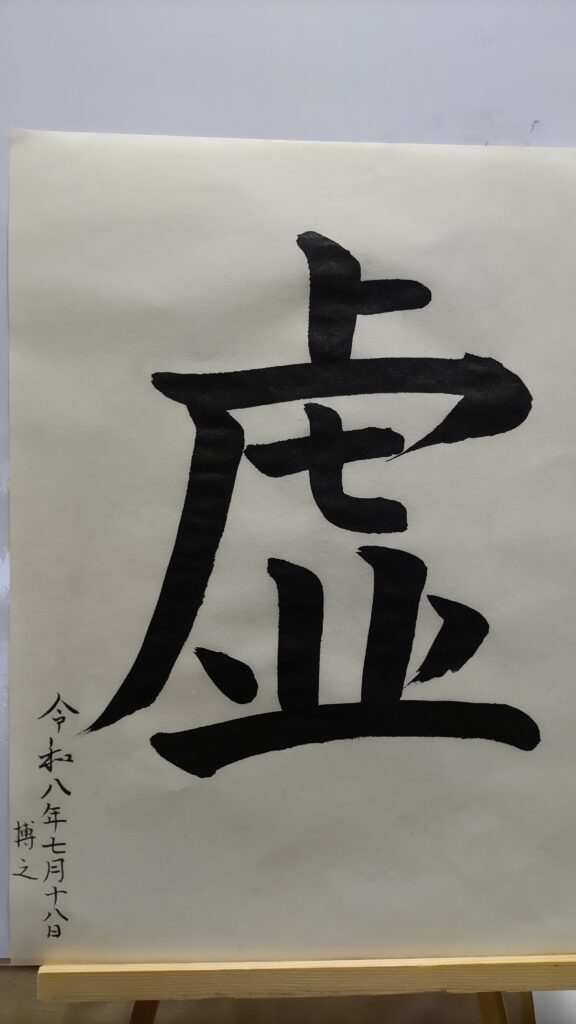 虚
令和八年七月十八日
博之